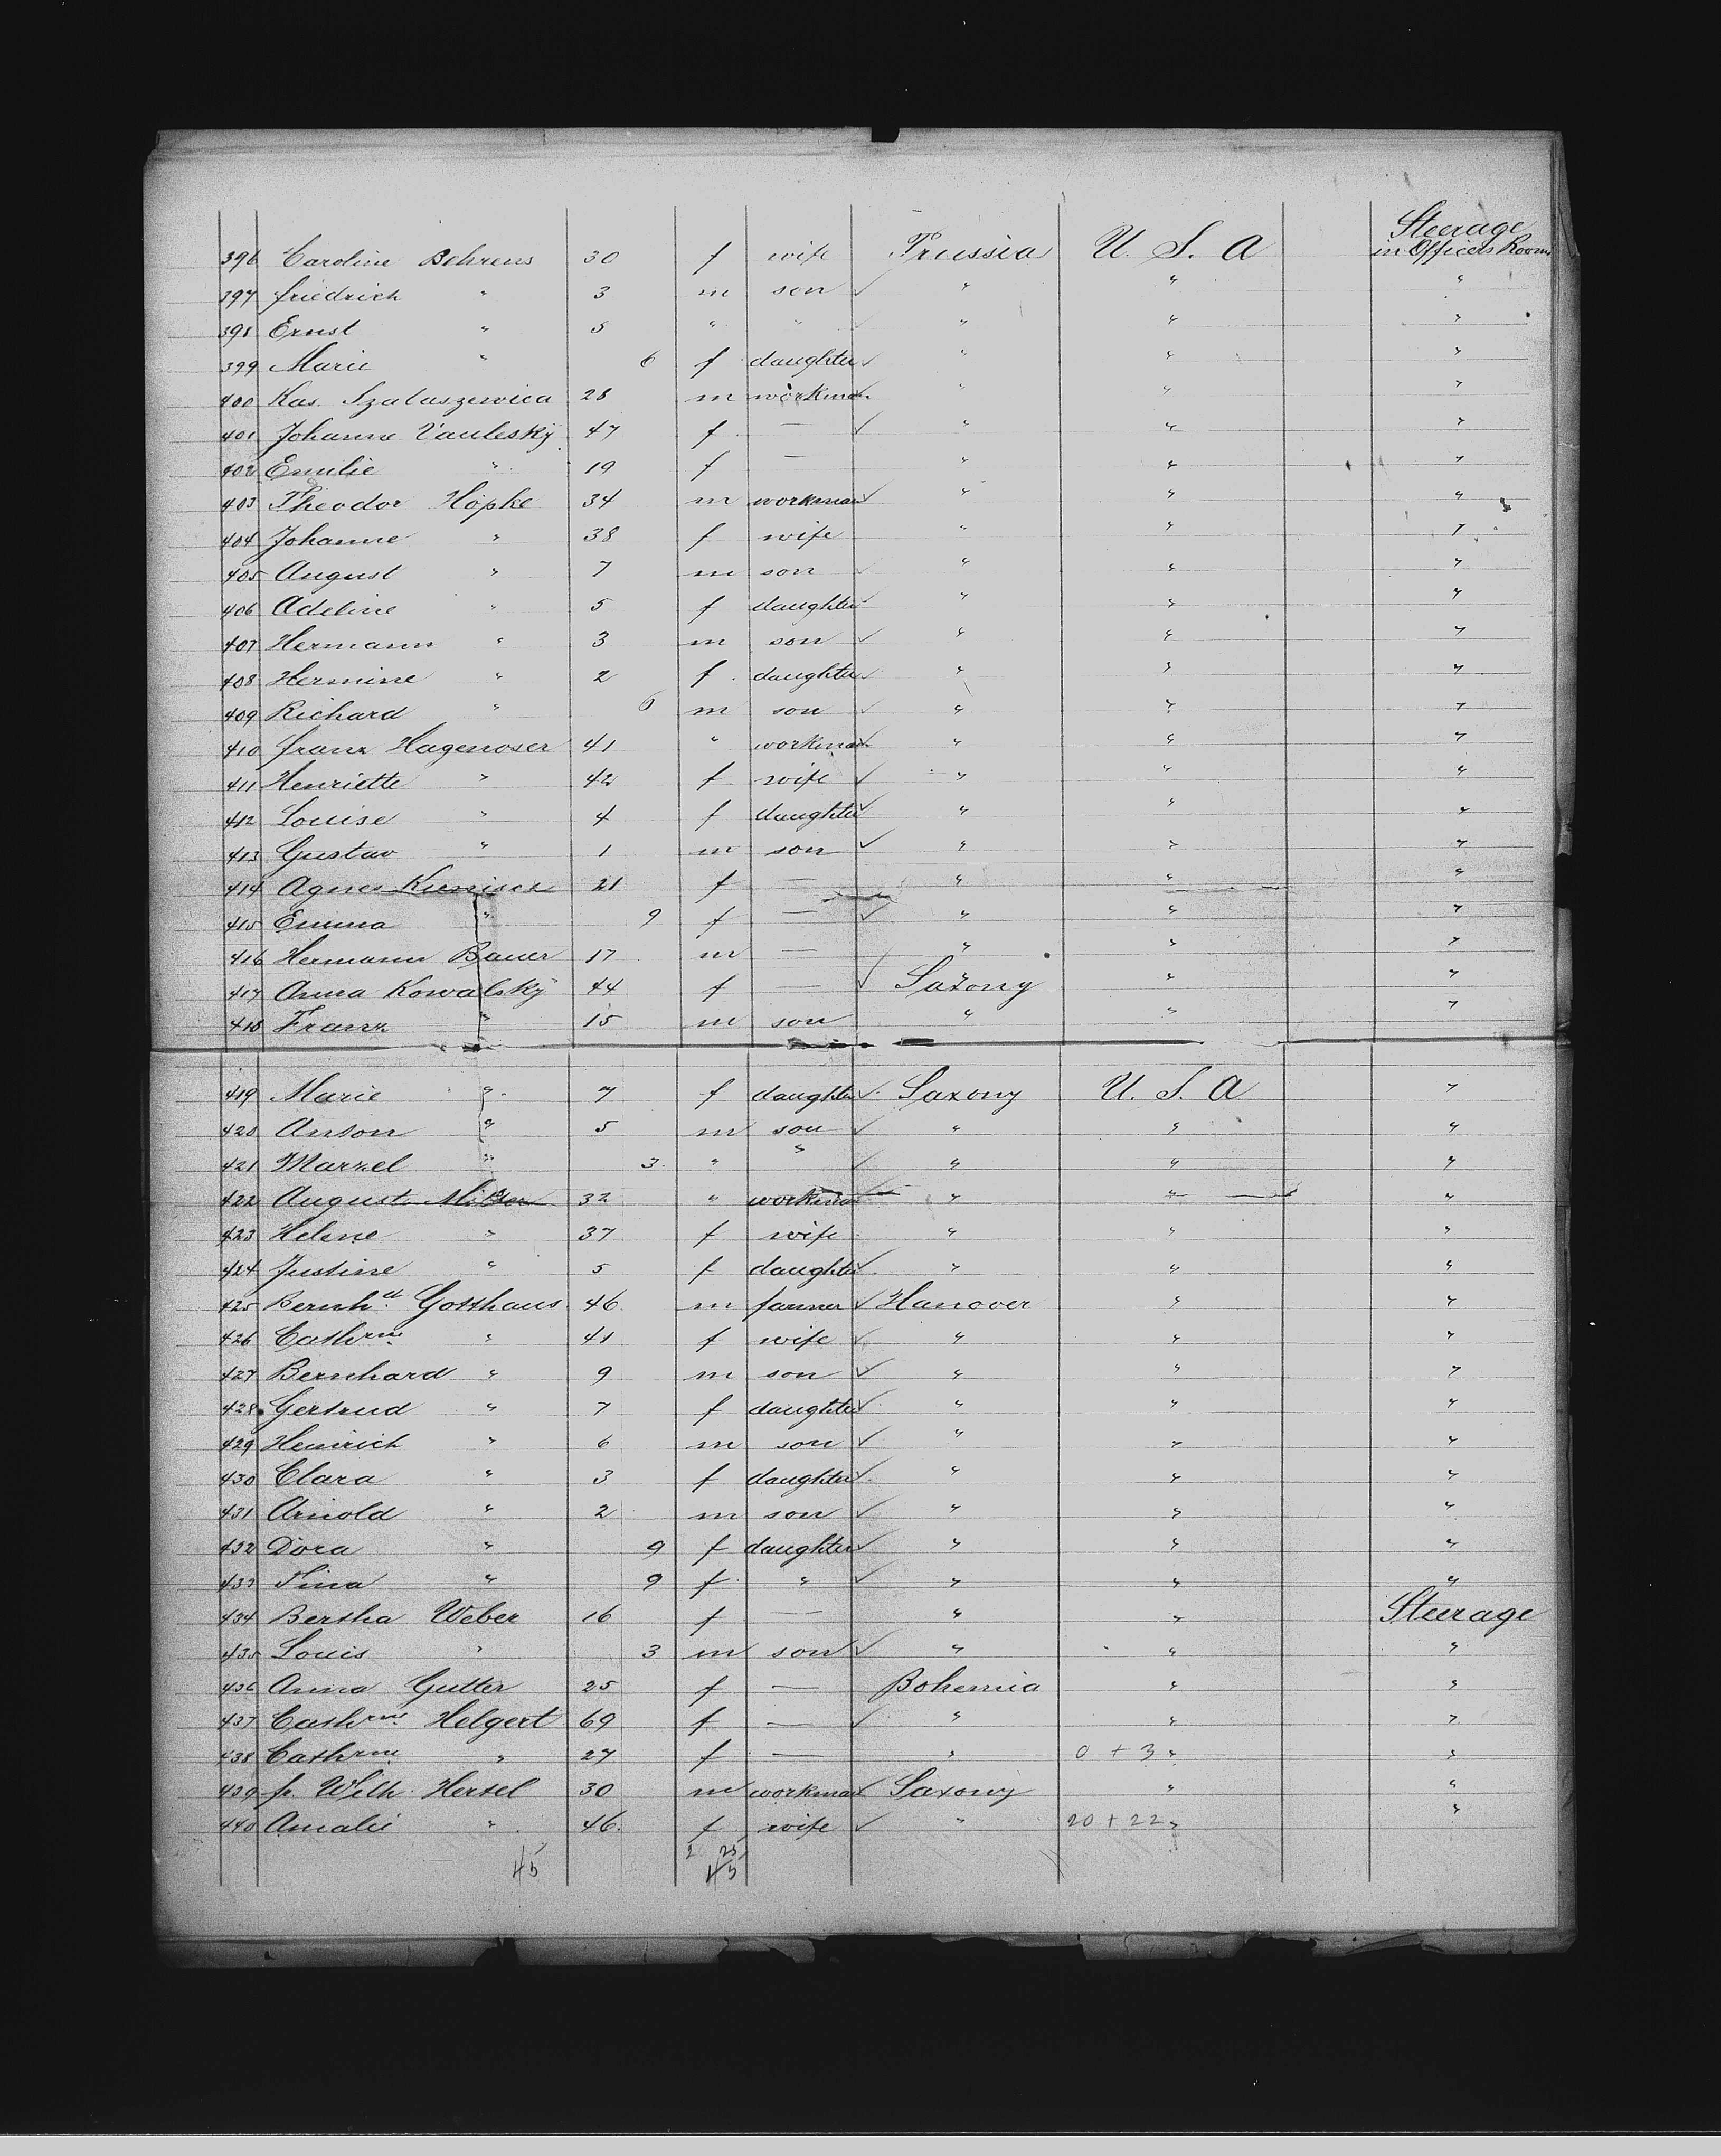 Steerage
396 Caroline Behrens 30 f wife Prussia U. S. A in Officers Room
397 friedrich " 3 m son ✓ " " "
398 Ernst " 5 " " ✓ " " "
399 Marie " 6 f daughter ✓ " " "
400 Kas. Szalaszewica 28 m workman ✓ " " "
401 Johanne 47 f — ✓ " " "
402 Emilie " 19 f — " " "
403 Theodor Höpke 34 m workman ✓ " " "
404 Johanne " 38 f wife " " "
405 August " 7 m son ✓ " " "
406 Adeline " 5 f daughter ✓ " " "
407 Hermann " 3 m son ✓ " " "
408 Hermine " 2 f daughter ✓ " " "
409 Richard " 6 m son ✓ " " "
410 franz Hagenoser 41 " workman ✓ " " "
411 Henriette " 42 f wife ✓ " " "
412 Louise " 4 f daughter ✓ " " "
413 Gustav " 1 m son ✓ " " "
414 Agnes 21 f — " " "
415 Emma " 9 f — ✓ " " "
416 Hermann Bauer 17 m — " " "
417 Anna Kowalsky 44 f — ✓ Saxony " "
418 Franz " 15 m son " " "
419 Marie " 7 f daughter ✓ Saxony U. S. A "
420 Anton " 5 m son ✓ " " "
421 Marzel " 3 " " ✓ " " "
422 August 32 " workman " " "
423 Helene " 37 f wife " " "
424 Justine " 5 f daughter ✓ " " "
425 Bernhd. Gotthaus 46 m farmer ✓ Hanover " "
426 Cathrne " 41 f wife ✓ " " "
427 Bernhard " 9 m son ✓ " " "
428 Gertrud " 7 f daughter ✓ " " "
429 Heinrich " 6 m son ✓ " " "
430 Clara " 3 f daughter ✓ " " "
431 Arnold " 2 m son ✓ " " "
432 Dora " 9 f daughter ✓ " " "
433 Tina " 9 f " ✓ " " "
434 Bertha Weber 16 f — " " Steerage
435 Louis " 3 m son ✓ " " "
436 Anna Gutter 25 f — Bohemia " "
437 Cathrne Helgert 69 f — ✓ " " "
438 Cathrne " 27 f — " 0 + 3 " "
439 fr. Wilh. Hertel 30 m workman ✓ Saxony " "
440 Amalie " 46 f wife ✓ " 20 + 22 " "
45 2 25
45